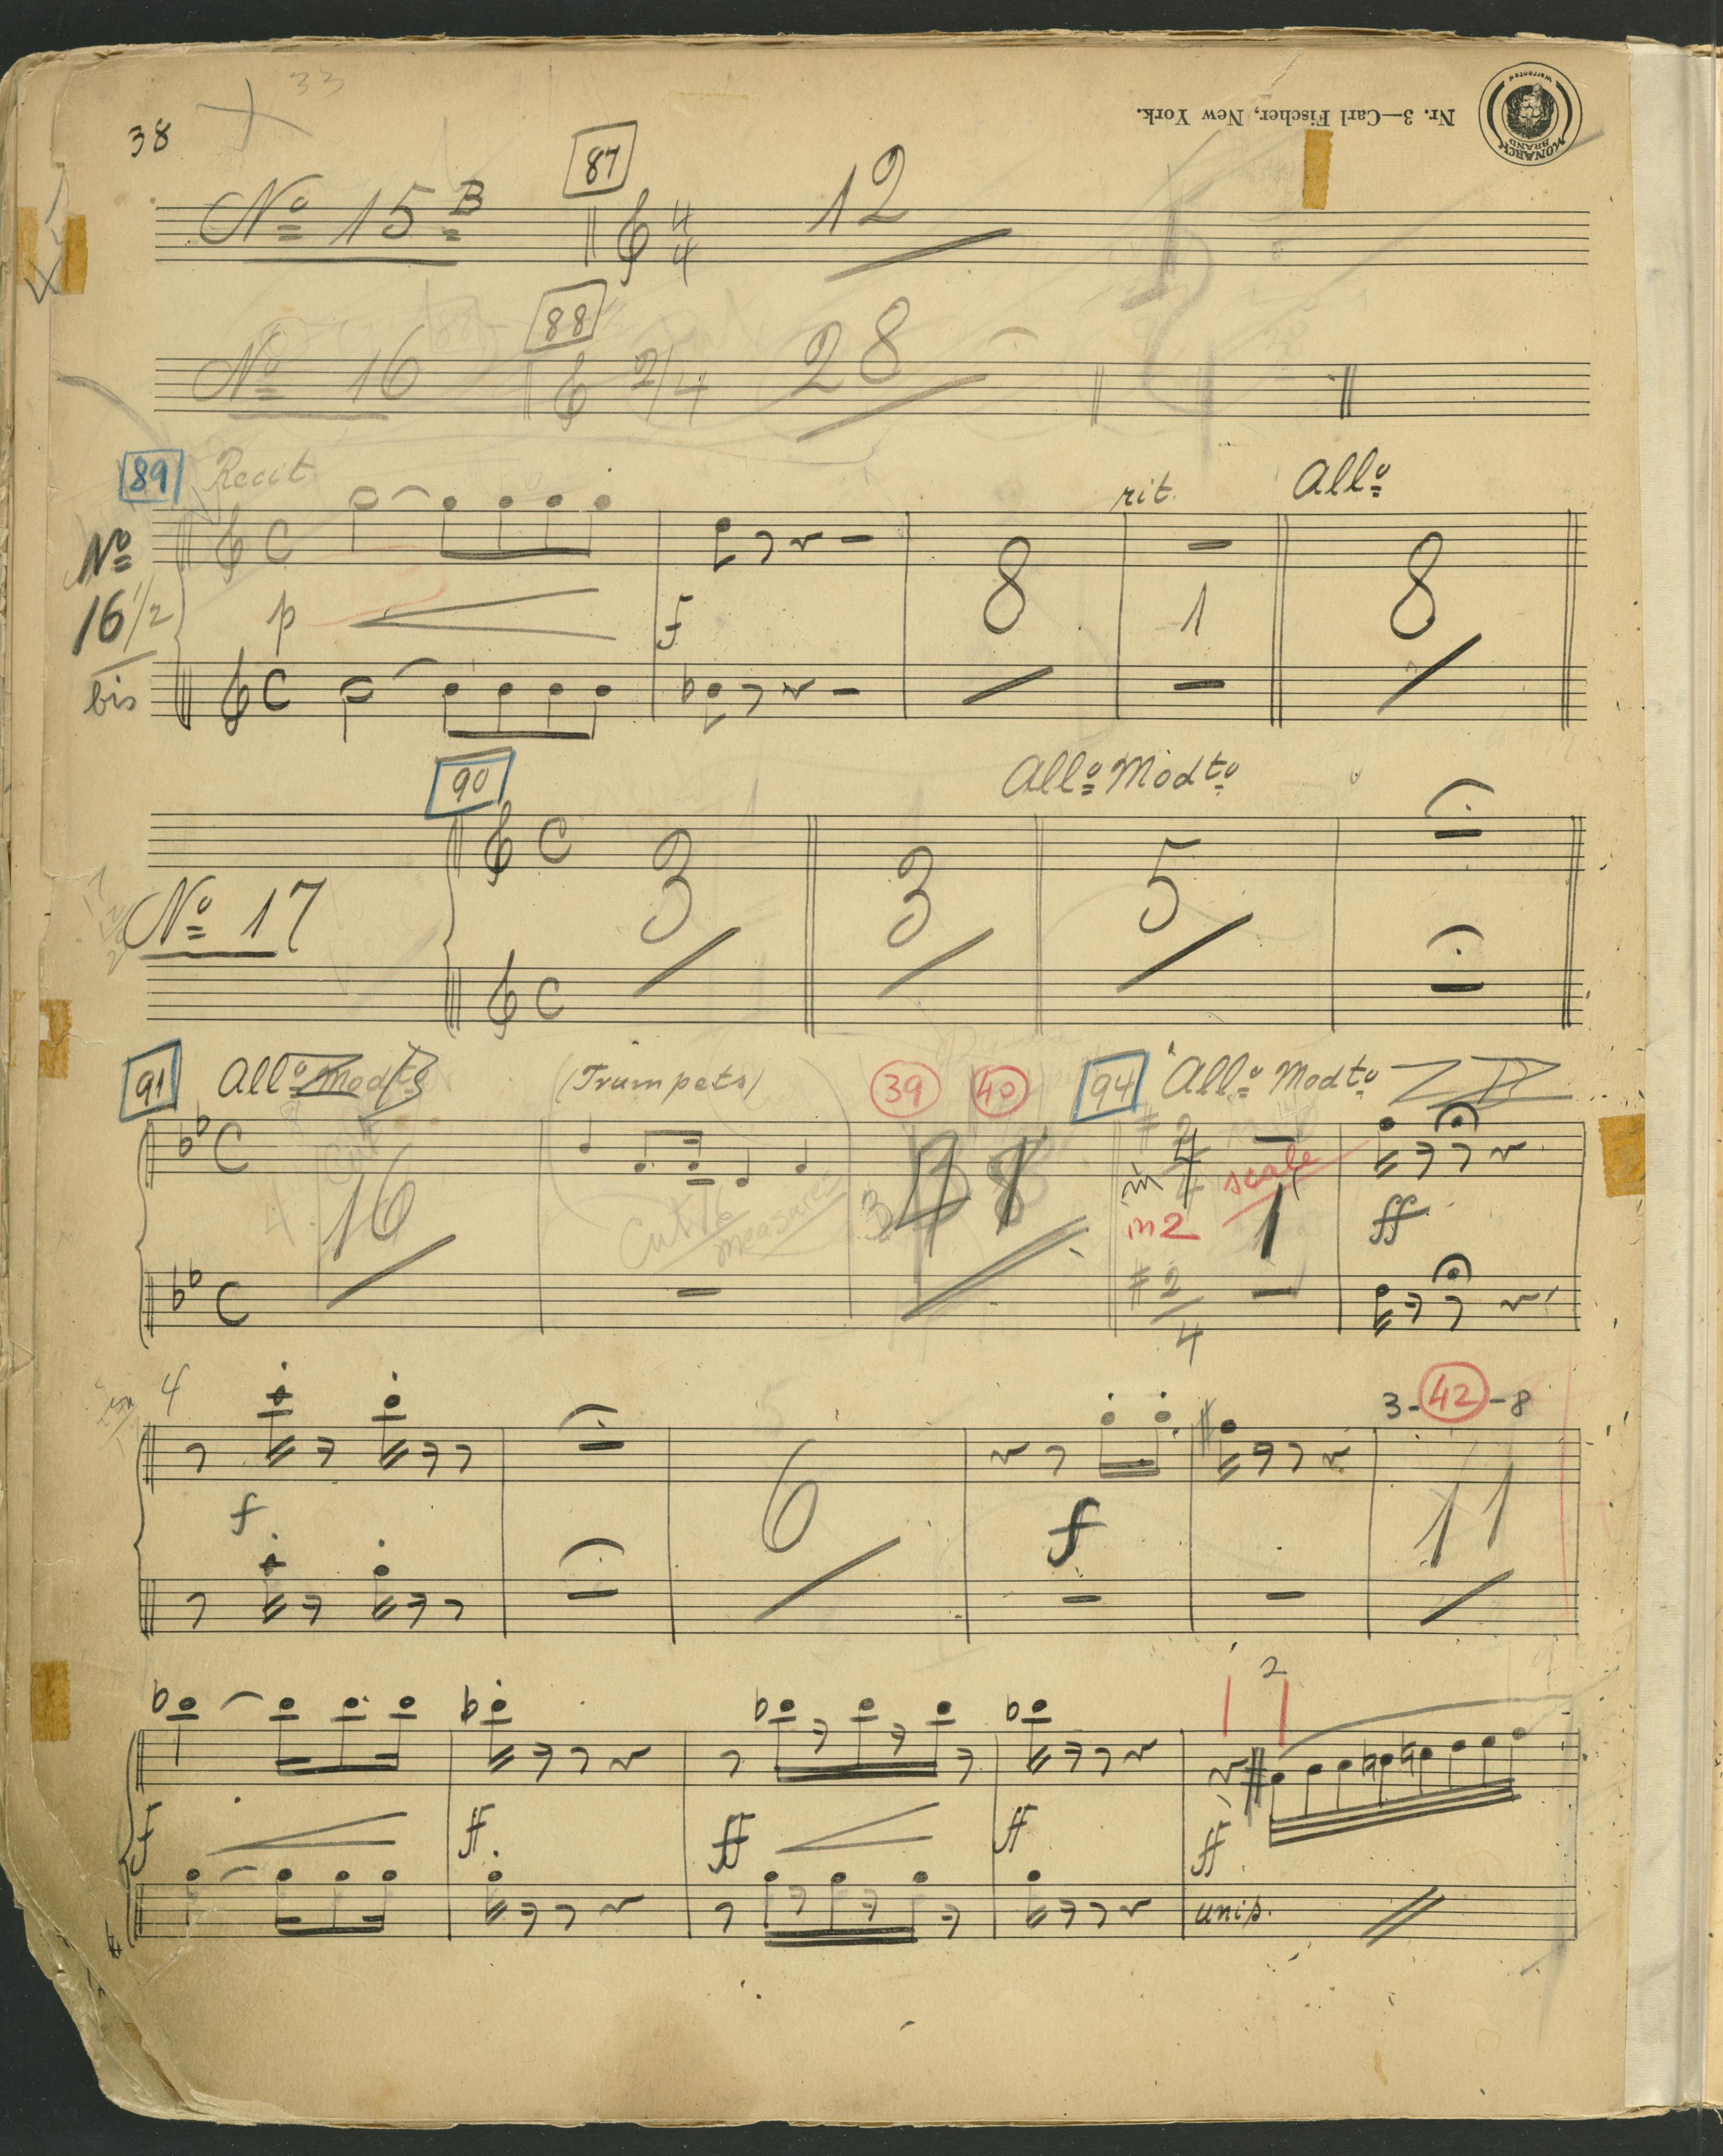 38
33
Nr. 3—Carl Fischer, New York.
MONARCH BRAND
Warranted
No 15 B 87 4 4 12
No 16 88 2/4 28
89 Recit rit. Allo
No 16 1/2 bis
C 8 1 8
p f
C
90 Allo Modto
No 17 C 3 3 5
C
91 Allo Modto (Trumpets) 39 40 94 Allo Modto
C Cut 16 Cut 16 measures 3 in in 2 scale 1 ff
C 2/4
4 3-42-8
f 6 f 11
2
f ff ff ff ff
unis.